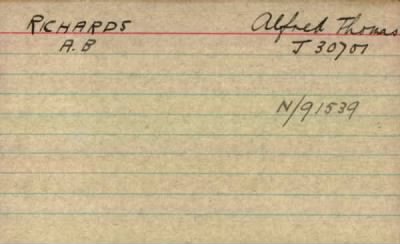 RICHARDS Alfred Thomas
A.B J 30701
N/91539